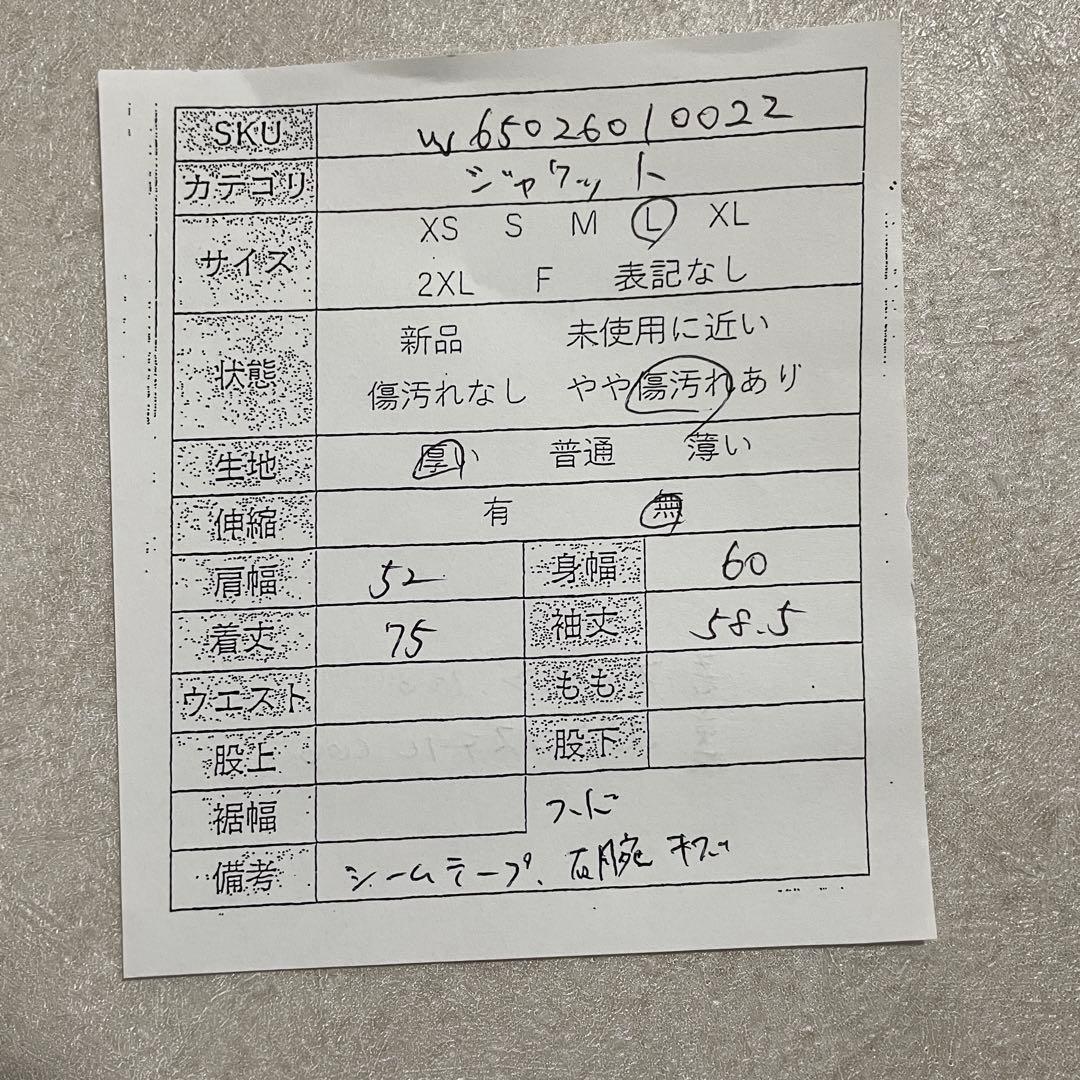 SKU w65026010022
カテゴリ ジャケット
サイズ XS S M L XL
2XL F 表記なし
状態 新品 未使用に近い
傷汚れなし やや傷汚れあり
生地 厚い 普通 薄い
伸縮 有 無
肩幅 52 身幅 60
着丈 75 袖丈 58.5
ウエスト もも
股上 股下
裾幅
備考 シームテープ、右腕 キズ